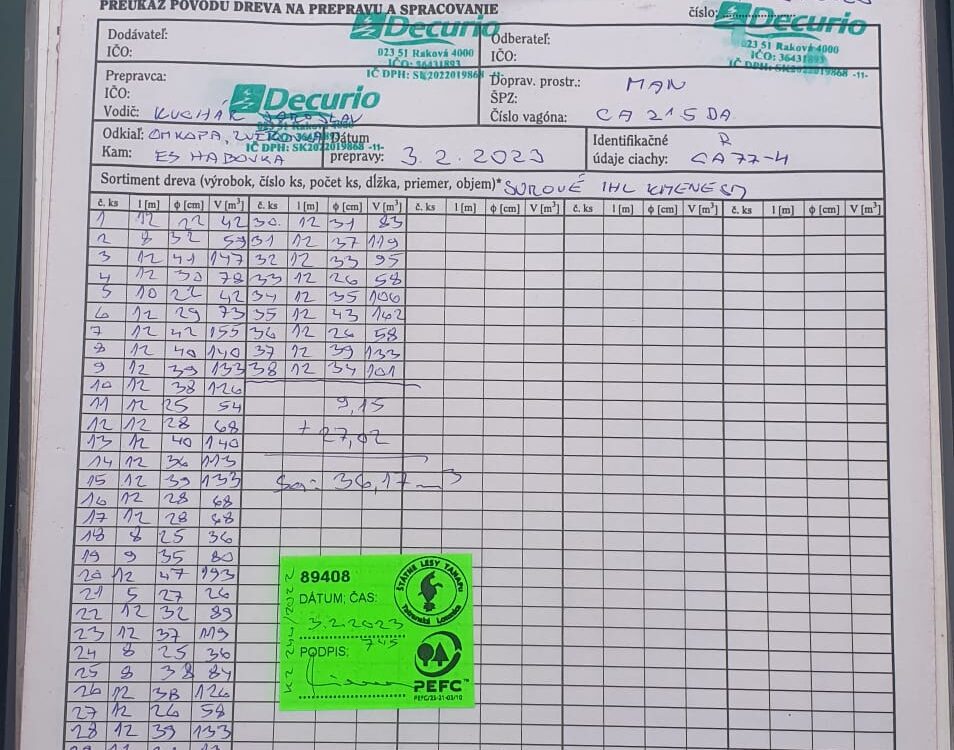 PREUKAZ PÔVODU DREVA NA PREPRAVU A SPRACOVANIE
číslo:
Dodávateľ:
IČO:
Decurio
023 51 Raková 4000
IČO: 36431893
IČ DPH: SK2022019868 -11-
Odberateľ:
IČO:
Decurio
023 51 Raková 4000
IČO: 36431893
IČ DPH: SK2022019868 -11-
Prepravca:
IČO:
Vodič: KUCHÁR JAROSLAV
Decurio
IČ DPH: SK2022019868 -11-
Doprav. prostr.: MAN
ŠPZ:
Číslo vagóna: CA 215 DA
Odkiaľ: OMKOPA,
Kam: ES HABOVKA
Dátum
prepravy: 3.2.2023
Identifikačné R
údaje ciachy: CA 77-4
Sortiment dreva (výrobok, číslo ks, počet ks, dĺžka, priemer, objem)* SUROVÉ IHL KMENE
č. ks l [m] ϕ [cm] V [m³] č. ks l [m] ϕ [cm] V [m³] č. ks l [m] ϕ [cm] V [m³] č. ks l [m] ϕ [cm] V [m³] č. ks l [m] ϕ [cm] V [m³]
1 12 22 42 30. 12 31 83
2 8 32 59 31 12 37 119
3 12 41 147 32 12 33 95
4 12 30 78 33 12 26 58
5 10 22 42 34 12 35 106
6 12 29 73 35 12 43 162
7 12 42 155 36 12 26 58
8 12 40 140 37 12 39 133
9 12 39 133 38 12 34 101
10 12 38 126
11 12 25 54 9,15
12 12 28 68 + 27,02
13 12 40 140
14 12 36 113
15 12 39 133 Sa: 36,17 m3
16 12 28 68
17 12 28 68
18 8 25 36
19 9 35 80
20 12 47 193
21 5 27 26
22 12 32 89
23 12 37 119
24 8 25 36
25 8 38 84
26 12 38 126
27 12 26 58
28 12 39 133
89408
DÁTUM; ČAS:
3.2.2023
7 45
PODPIS:
ŠTÁTNE LESY TANAPU
Tatranská Lomnica
PEFC™
PEFC/23-31-03/10